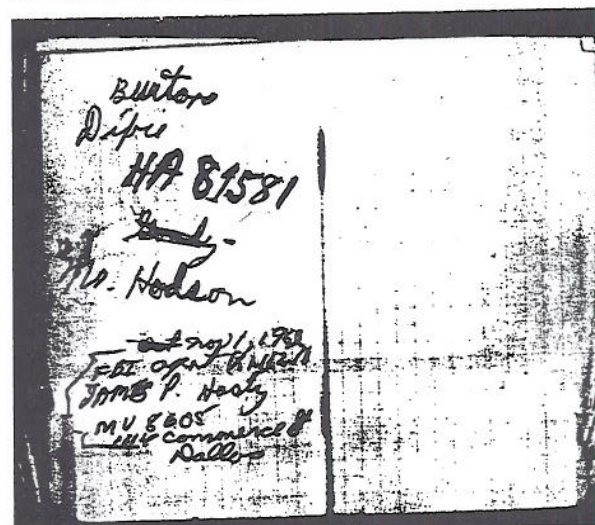 Burton
Dixie
HA 81581
Mr. Hodson
nov 1, 1963
FBI agent
JAMES P. Hasty
MU 8605
1114 Commerce St
Dallas